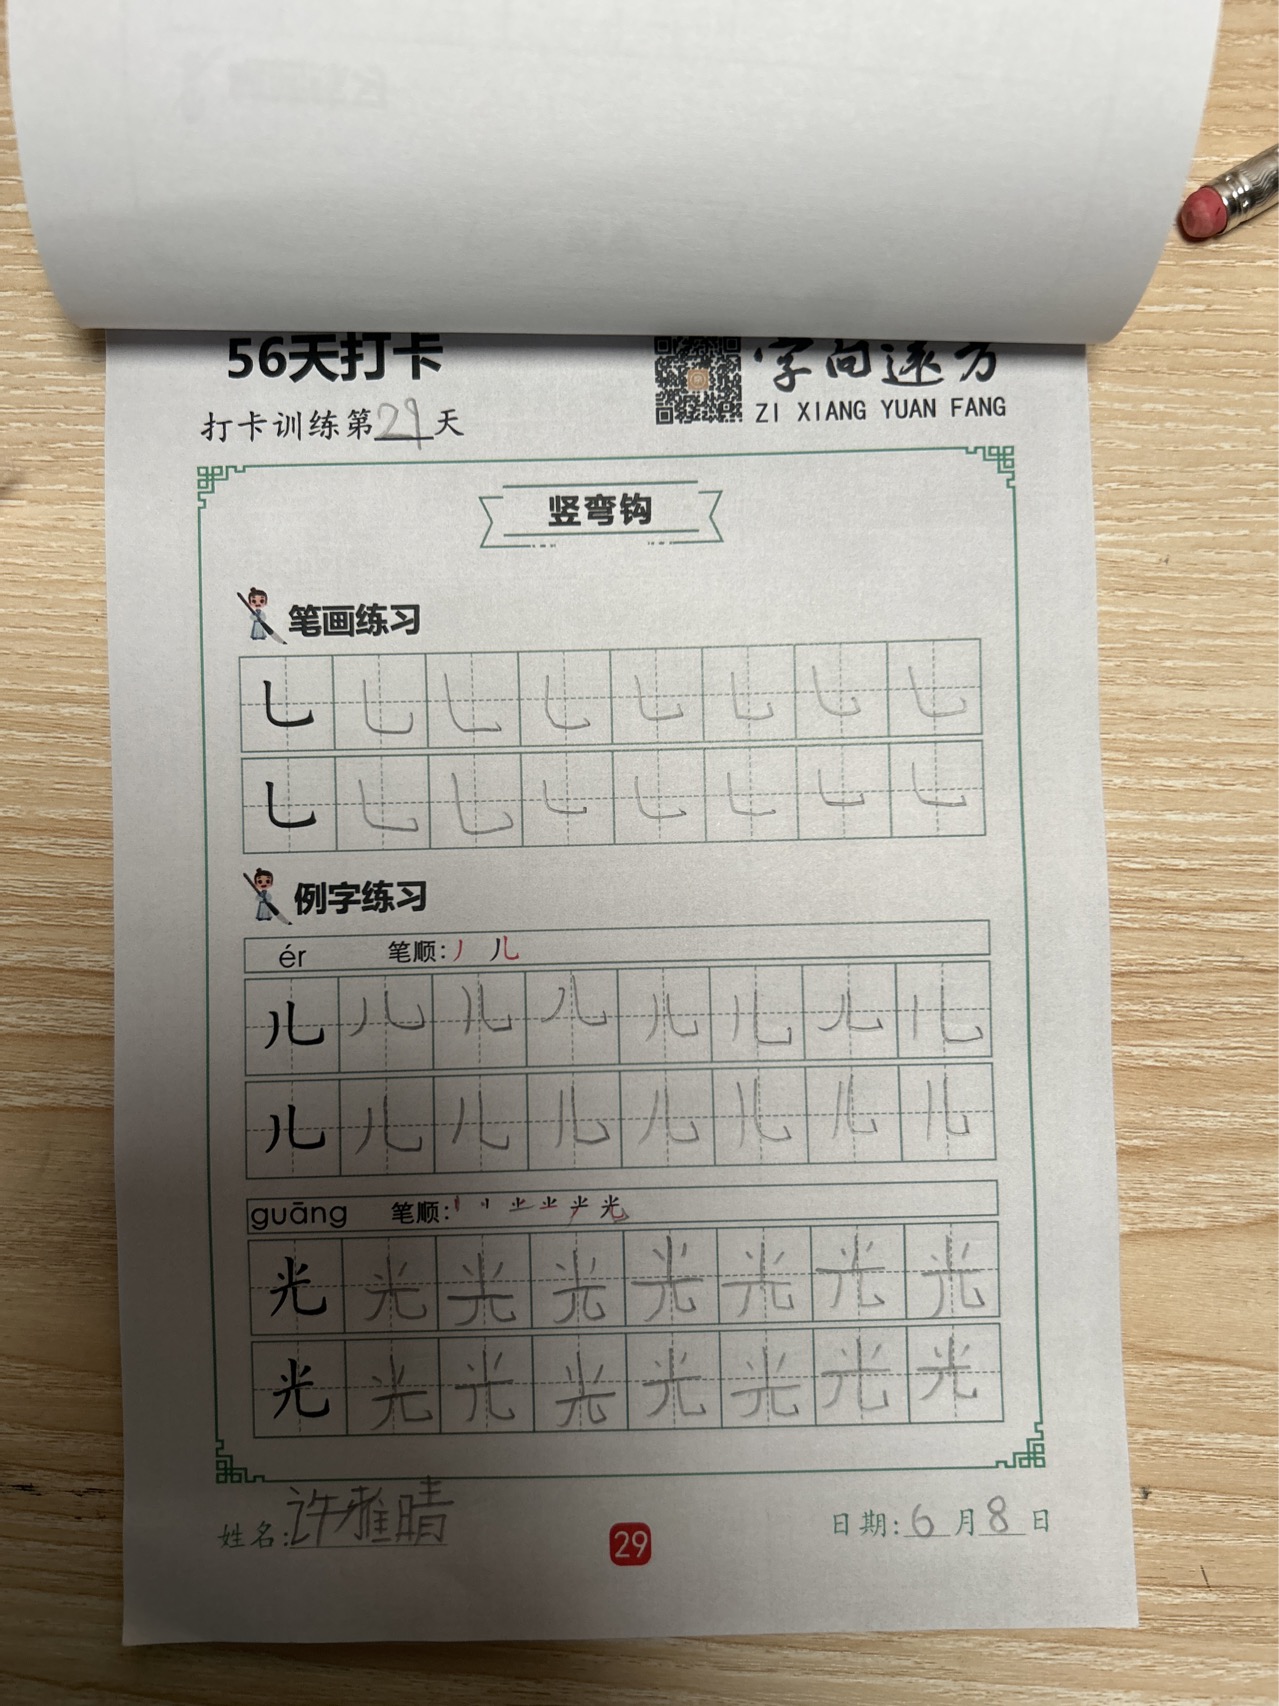 56天打卡
字向远方
ZI XIANG YUAN FANG
打卡训练第29天
竖弯钩
笔画练习
乚乚乚乚乚乚乚乚
乚乚乚乚乚乚乚乚
例字练习
ér 笔顺:丿 儿
儿儿儿儿儿儿儿儿
儿儿儿儿儿儿儿儿
guāng 笔顺:
光光光光光光光光
光光光光光光光光
姓名:许雅晴
29
日期:6月8日